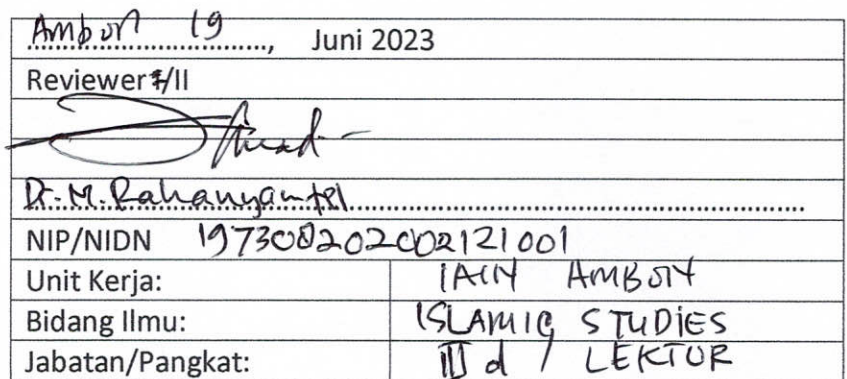 Ambon 19, Juni 2023
Reviewer I/II
Dr. M. Rahanyamtel
NIP/NIDN 197308202002121001
Unit Kerja: IAIN AMBON
Bidang Ilmu: ISLAMIC STUDIES
Jabatan/Pangkat: III d / LEKTOR